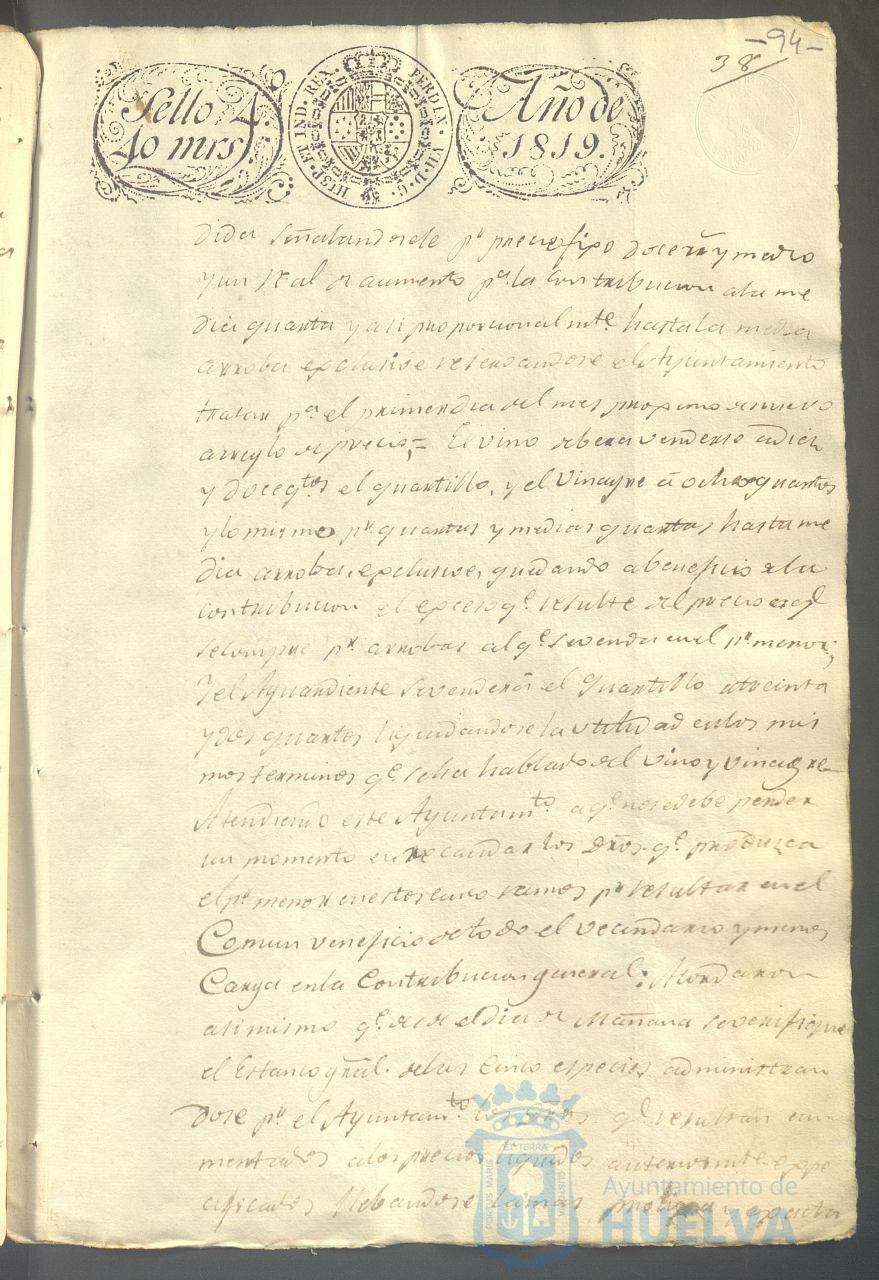 -94-
38
Sello 4.º
40 mrs.
HISP. ET IND. REX. FERDIN. VII. D. G.
Año de
1819.
dida señalandosele pr. precio fijo doce rs. y medio
y un real de aumento pa. la contribucion a la me
dia quarta y asi proporcionalmte. hasta la media
arroba exclusive reservandose el Ayuntamiento
tratar pa. el primer dia del mes proximo de nuevo
arreglo de precio;= El vino debera venderse a diez
y doce qtos. el quartillo, y el Vinagre á ocho quartos
y lo mismo pr. quartas y medias quartas hasta me
dia arroba exclusive, quedando a beneficio de la
contribucion el exceso qe. resulte del precio en qe.
se compre pr. arrobas al qe. se venda en el pr. menor;
Y el Aguardiente se venderá el quartillo a treinta
y dos quartos liquidandose la utilidad en los mis
mos terminos qe. se ha hablado del vino y vinagre
Atendiendo este Ayuntamto. a qe. no se debe perder
un momento en recaudar los dros. qe. produzca
el pr. menor en estos cinco ramos pr. resultar en el
Comun veneficio de todo el vecindario y menos
Carga en la Contribucion general: Acordaron
asi mismo qe. desde el dia de Mañana se verifique
el Estanco gral. de las Cinco especies administran
dose pr. el Ayuntamto. los dros. qe. resultan au
mentados a los precios liquidos anteriormte. espe
cificados llebandose la mas prolija y exacta
PORTUS MARIS ET TERRAE CUSTODIA
Ayuntamiento de
HUELVA